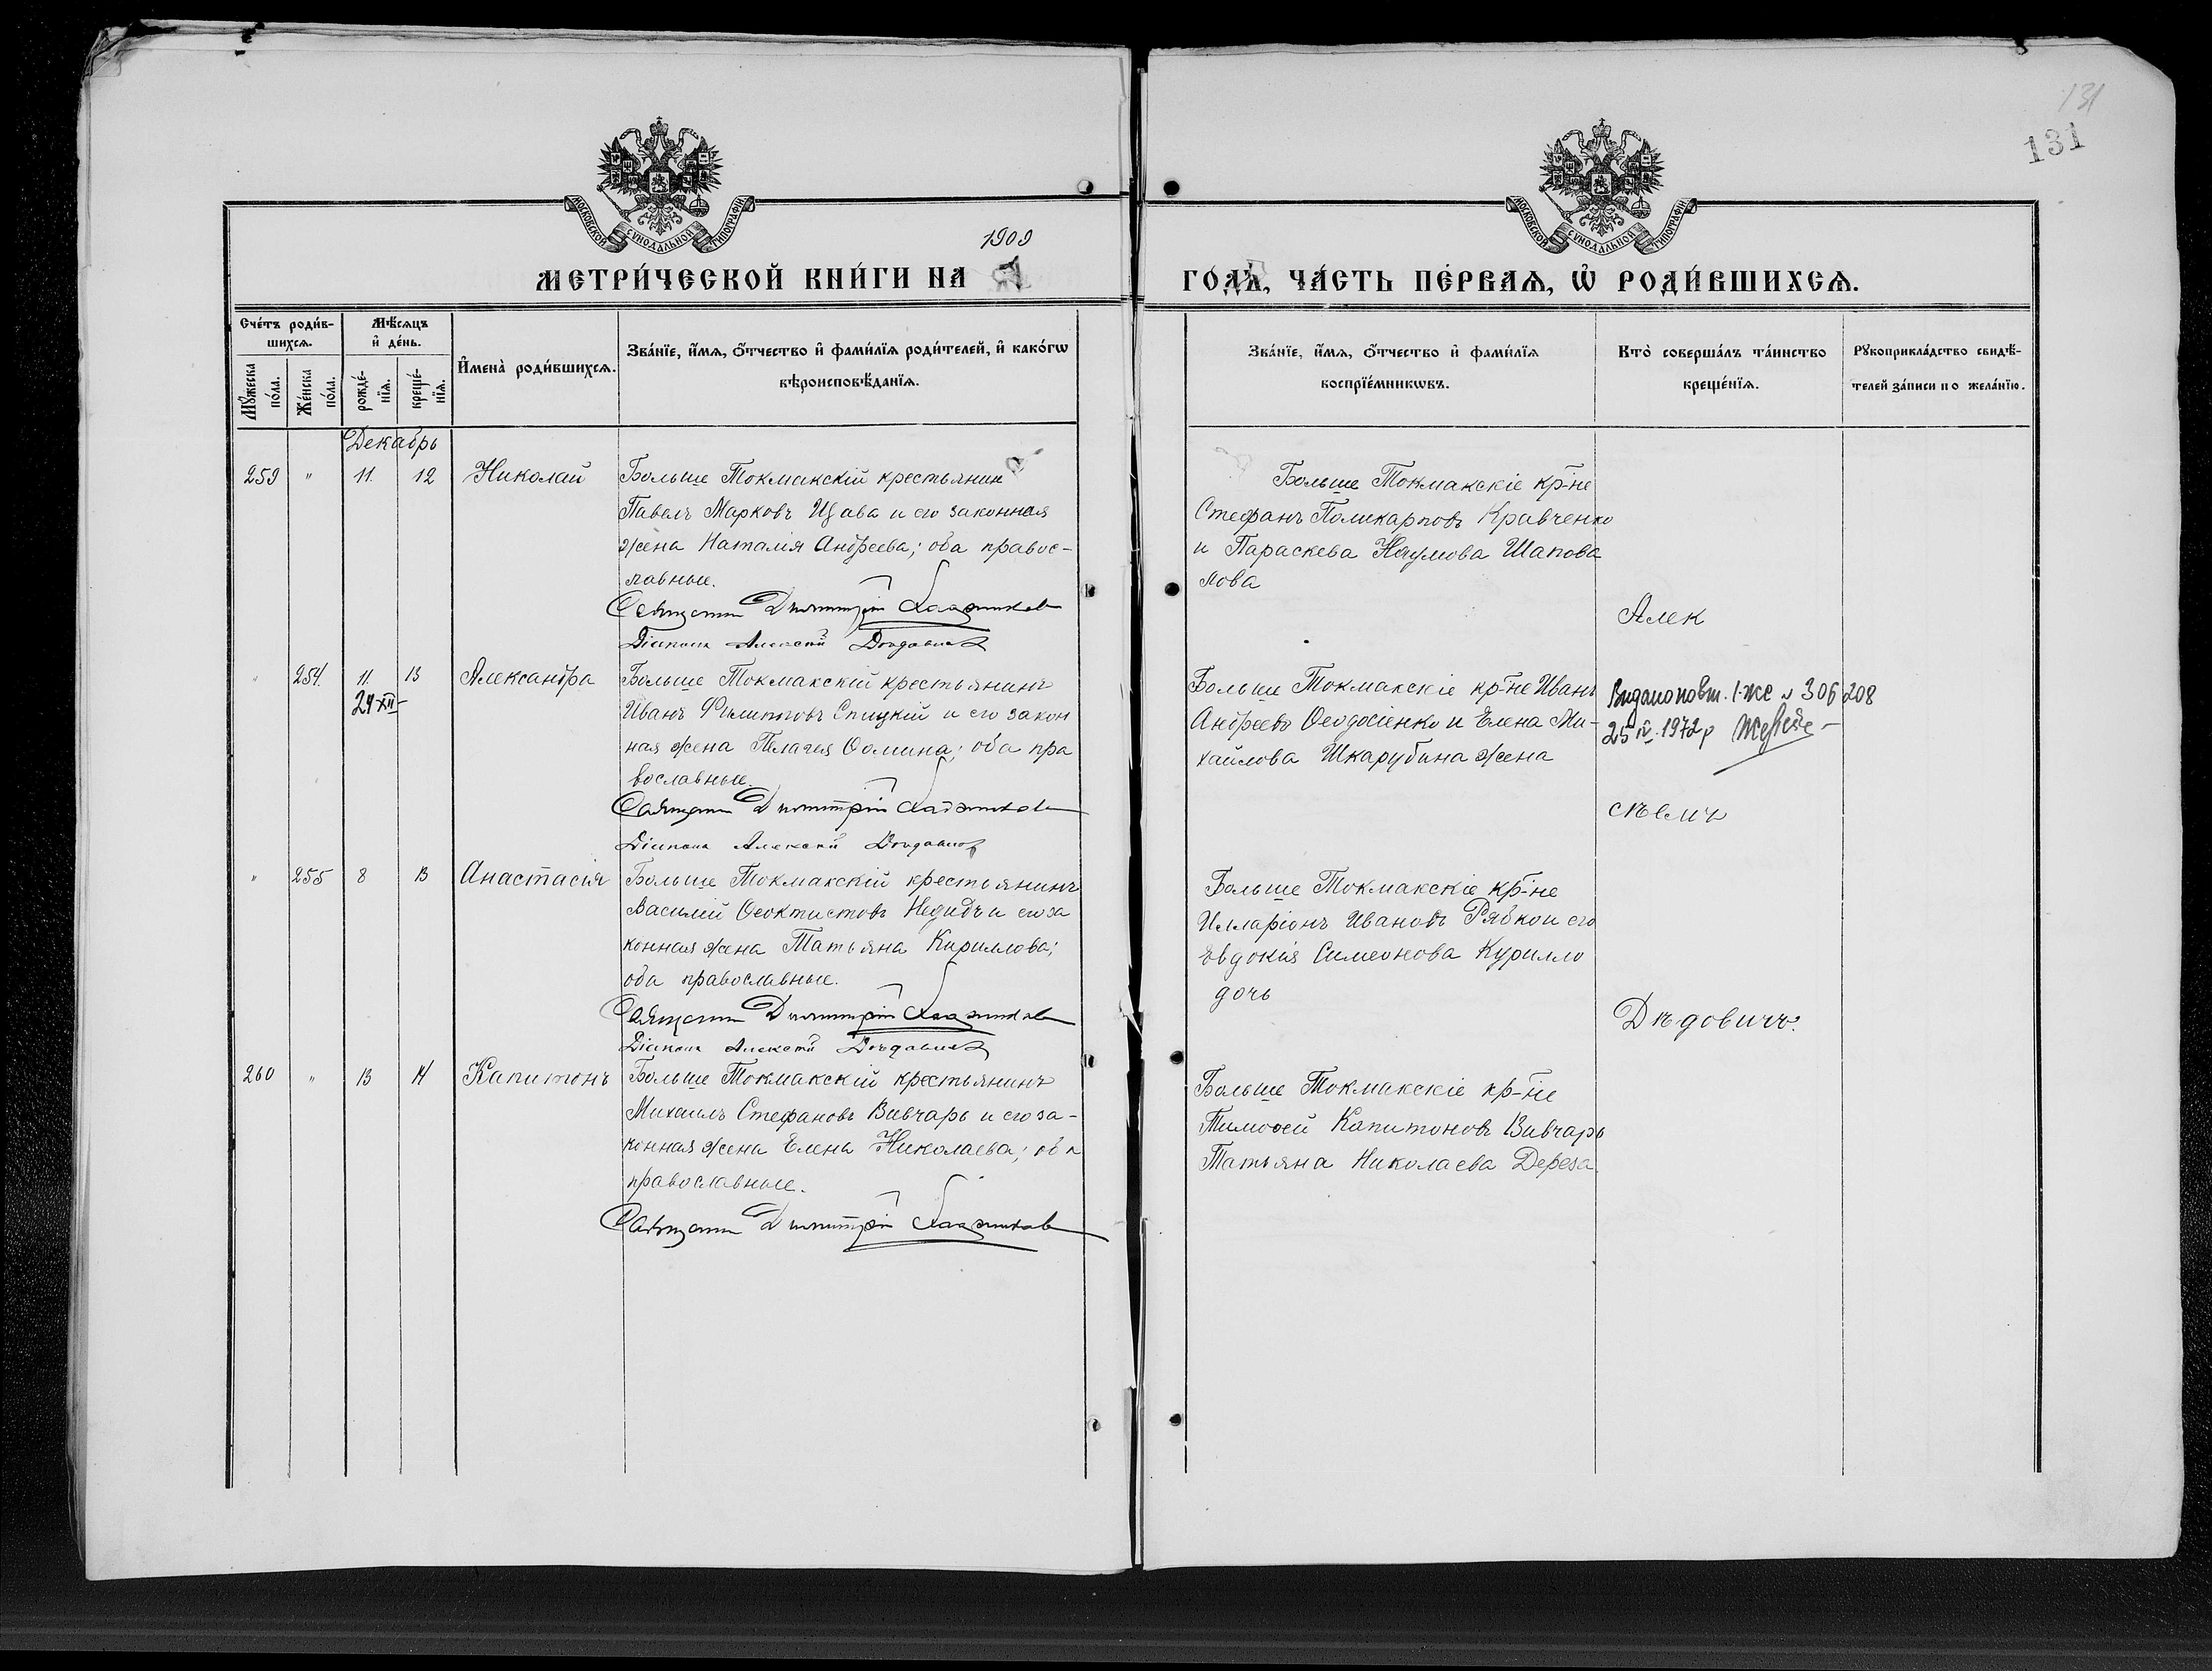 131
131
МОСКОВСКОЙ СѴНОДАЛЬНОЙ ТИПОГРАФІИ
МОСКОВСКОЙ СѴНОДАЛЬНОЙ ТИПОГРАФІИ
1909
МЕТРИ́ЧЕСКОЙ КНИ́ГИ НА
ГО́ДЪ, ЧА́СТЬ ПЕ́РВАѦ, Ѡ҆ РОДИ́ВШИХСѦ.
Сче́тъ роди́в-
шихсѧ.
Мꙋ́жеска по́ла.
Же́нска по́ла.
Мѣ́сѧцъ
и҆ де́нь.
рожде́-
нїѧ.
креще́-
нїѧ.
И҆мена̀ роди́вшихсѧ.
Зва́нїе, и҆́мѧ, ѻ҆́тчество и҆ фами́лїѧ роди́телей, и҆ како́гѡ
вѣроисповѣ́данїѧ.
Зва́нїе, и҆́мѧ, ѻ҆́тчество и҆ фами́лїѧ
воспрїе́мникѡвъ.
Кто̀ соверша́лъ та́инство
креще́нїѧ.
Рꙋкоприкла́дство свидѣ́-
телей за́писи по жела́нїю.
Декабрь
259 " 11. 12 Николай
Больше Токмакскій крестьянин
Павелъ Марковъ Щава и его законная
жена Наталія Андреева; оба правос-
лавные.
Священн Димитрій
Діаконъ Алексѣй
Больше Токмакскіе кр-не
Стефанъ Поликарповъ Кравченко
и Параскева Наумова Шапова
лова
Алек
" 254. 11. 13 Александра
24-XII-
Больше Токмакскій крестьянинъ
Иванъ Филипповъ Спицкій и его закон
ная жена Пелагея Ѳомина; оба пра
вославные.
Священн Димитрій
Діаконъ Алексѣй
Больше Токмакскіе кр-не Иванъ
Андреевъ Ѳеодосіенко и Елена Ми-
хайлова Шкарубина жена
Видано повт. І-ЖС № 306208
25 IV. 1972р
сѣевич
" 255 8 13 Анастасія
Больше Токмакскій крестьянинъ
Василій Ѳеоктистовъ и его за
конная жена Татьяна Кириллова;
оба православные.
Священн Димитрій
Діаконъ Алексѣй
Больше Токмакскіе кр-не
Илларіонъ Ивановъ Рябко и его
Евдокія Симеонова Курилло
дочь
Дѣдовичъ.
260 " 13 14 Капитонъ
Больше Токмакскій крестьянинъ
Михаилъ Стефановъ Вивчарь и его за-
конная жена Елена Николаева; оба
православные.
Священн Димитрій
Больше Токмакскіе кр-не
Тимоѳей Капитоновъ Вивчарь
Татьяна Николаева Дереза.